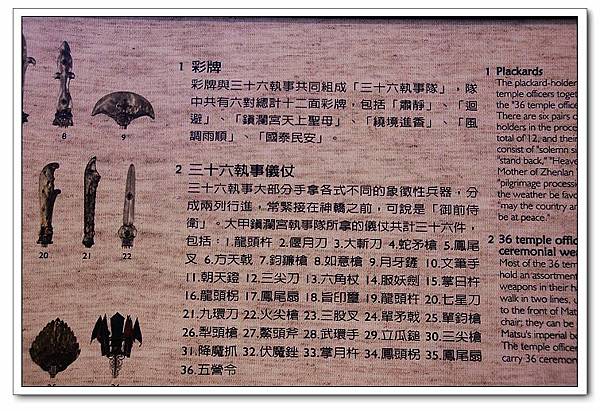 1 彩牌
彩牌與三十六執事共同組成「三十六執事隊」，隊
中共有六對總計十二面彩牌，包括「肅靜」、「迴
避」、「鎮瀾宮天上聖母」、「繞境進香」、「風
調雨順」、「國泰民安」。
2 三十六執事儀仗
三十六執事大部分手拿各式不同的象徵性兵器，分
成兩列行進，常緊接在神轎之前，可說是「御前侍
衛」。大甲鎮瀾宮執事隊所拿的儀仗共計三十六件，
包括：1.龍頭杵 2.偃月刀 3.大斬刀 4.蛇矛槍 5.鳳尾
叉 6.方天戟 7.鉤鐮槍 8.如意槍 9.月牙鏟 10.文筆手
11.朝天鐙 12.三尖刀 13.六角杖 14.服妖劍 15.掌日杵
16.龍頭柺 17.鳳尾扇 18.旨印璽 19.龍頭杵 20.七星刀
21.九環刀 22.火尖槍 23.三股叉 24.單矛戟 25.單鈎槍
26.梨頭槍 27.鰲頭斧 28.武環手 29.立瓜鎚 30.三尖槍
31.降魔抓 32.伏魔銼 33.掌月杵 34.鳳頭柺 35.鳳尾扇
36.五營令
1 Plackards
The plackard-holder
temple officers toget
the "36 temple office
There are six pairs o
holders in the proce
total of 12, and their
consist of "solemn si
"stand back," "Heave
Mother of Zhenlan
"pilgrimage processio
the weather be favo
"may the country an
be at peace."
2 36 temple offic
ceremonial we
Most of the 36 tem
hold an assortment
weapons in their ha
walk in two lines, u
to the front of Mat
chair; they can be
Matsu's imperial bo
The temple officer
carry 36 ceremon
8
9
20
21
22